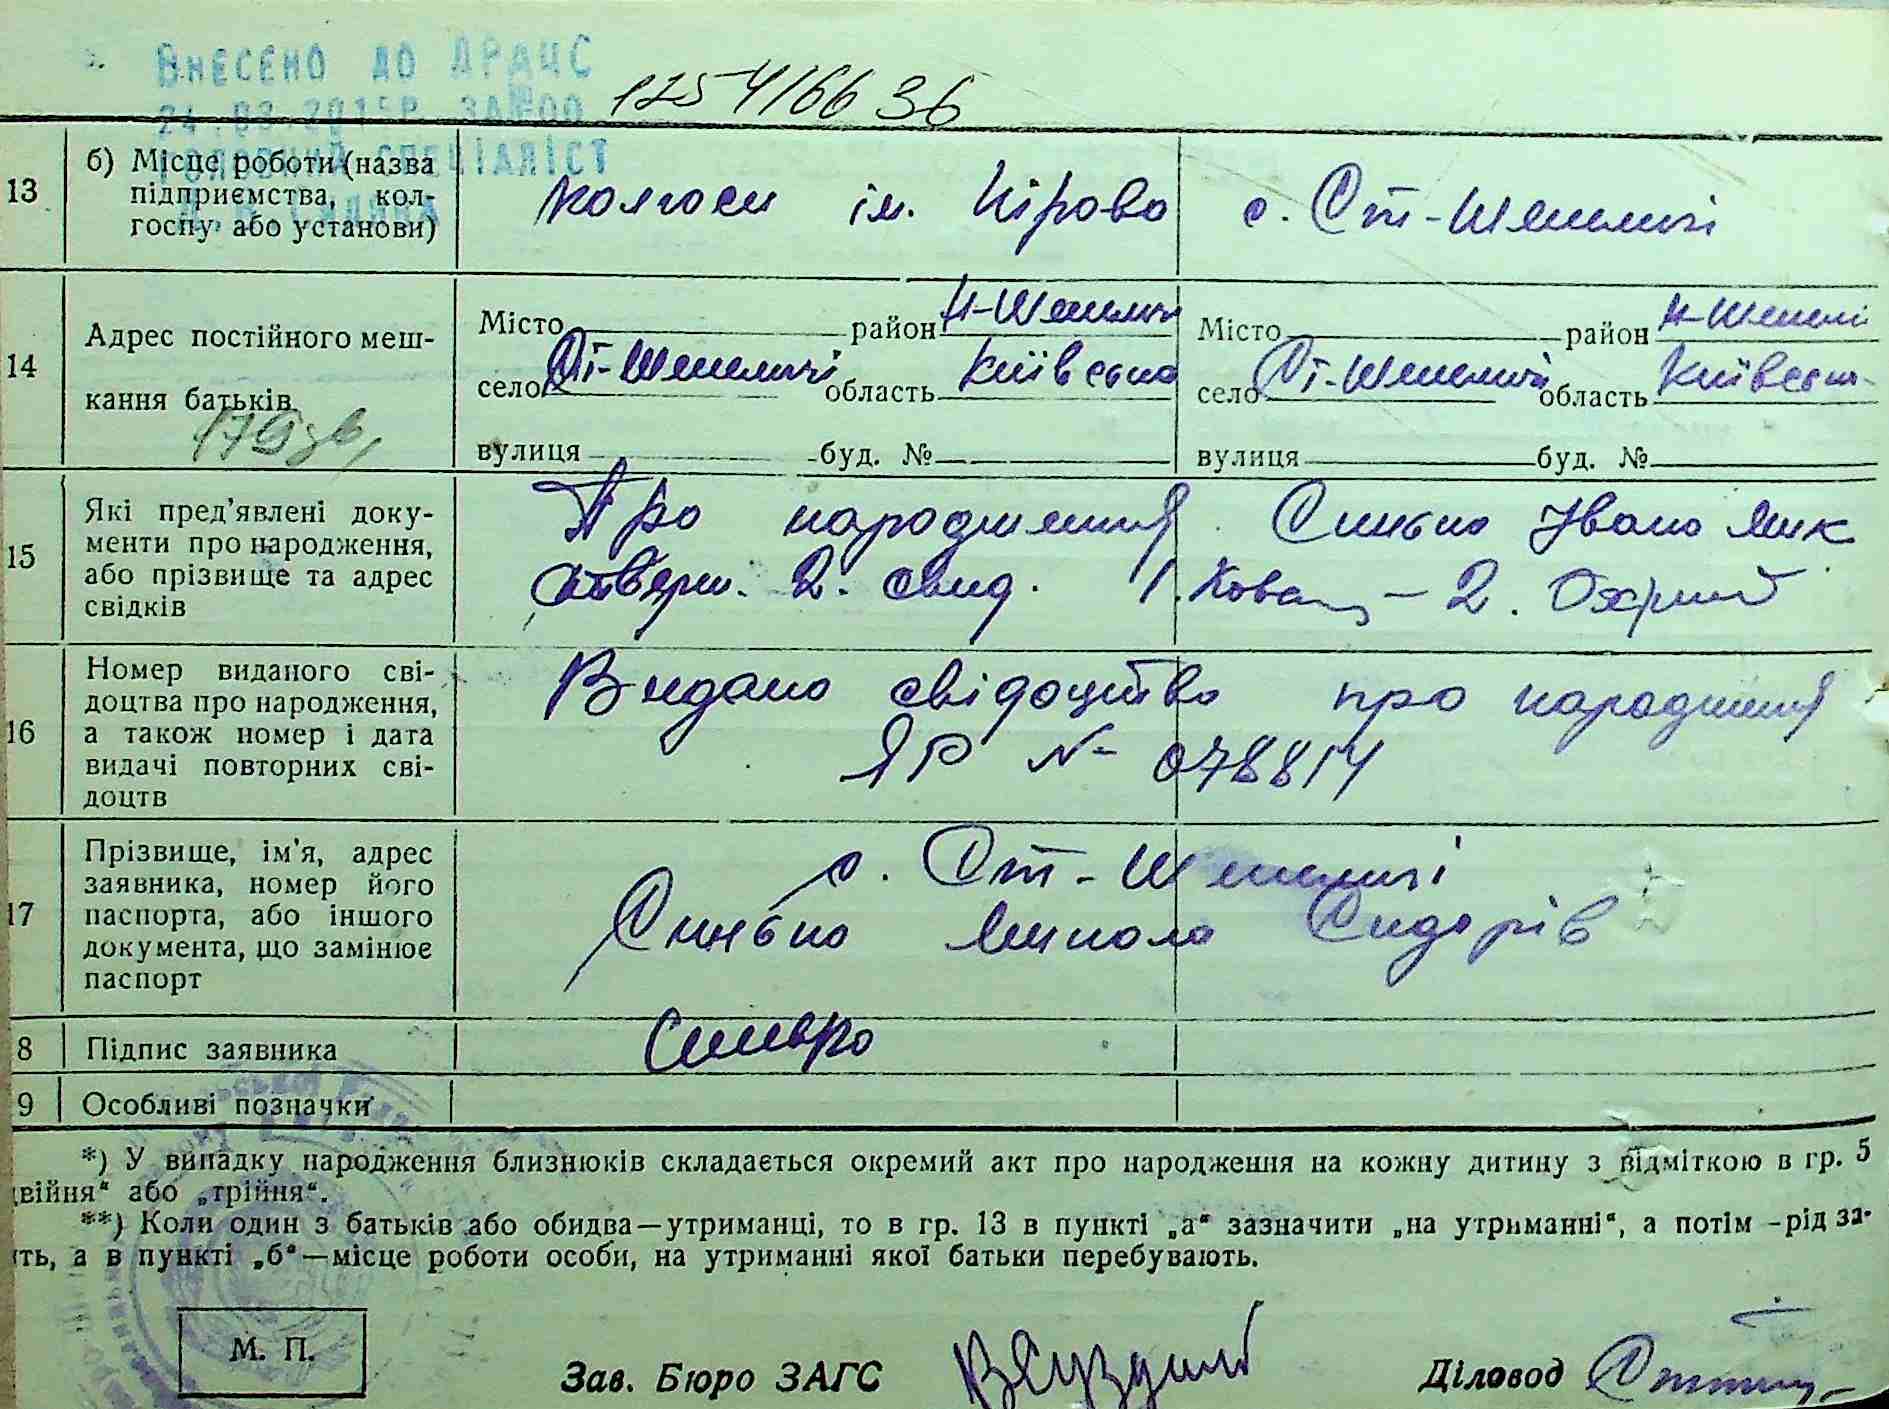 Внесено до ДРАЦС
1254166 36
24.03.2015р.
головний спеціаліст
13 б) Місце роботи (назва підприємства, колгоспу, або установи)
колгосп ім. Кірова с. Ст-Шепеличі
14 Адрес постійного мешкання батьків
Місто район Н-Шепелич
село Ст-Шепеличі область Київська
вулиця буд. №
Місто район Н-Шепелі
село Ст-Шепеличі область Київськ.
вулиця буд. №
15 Які пред'явлені документи про народження, або прізвище та адрес свідків
Про народження Синько Івана Мик
ствер. 2. свид. 1. Коваль – 2. Охрий
16 Номер виданого свідоцтва про народження, а також номер і дата видачі повторних свідоцтв
Видано свідоцтво про народження
ЯР № 078814
17 Прізвище, ім'я, адрес заявника, номер його паспорта, або іншого документа, що замінює паспорт
с. Ст-Шепеличі
Синько Микола Сидорів
8 Підпис заявника
9 Особливі позначки
*) У випадку народження близнюків складається окремий акт про народження на кожну дитину з відміткою в гр. 5
двійня" або „трійня".
**) Коли один з батьків або обидва—утриманці, то в гр. 13 в пункті „а" зазначити „на утриманні", а потім -рід за-
ть, а в пункті „б"—місце роботи особи, на утриманні якої батьки перебувають.
М. П.
Зав. Бюро ЗАГС
Діловод